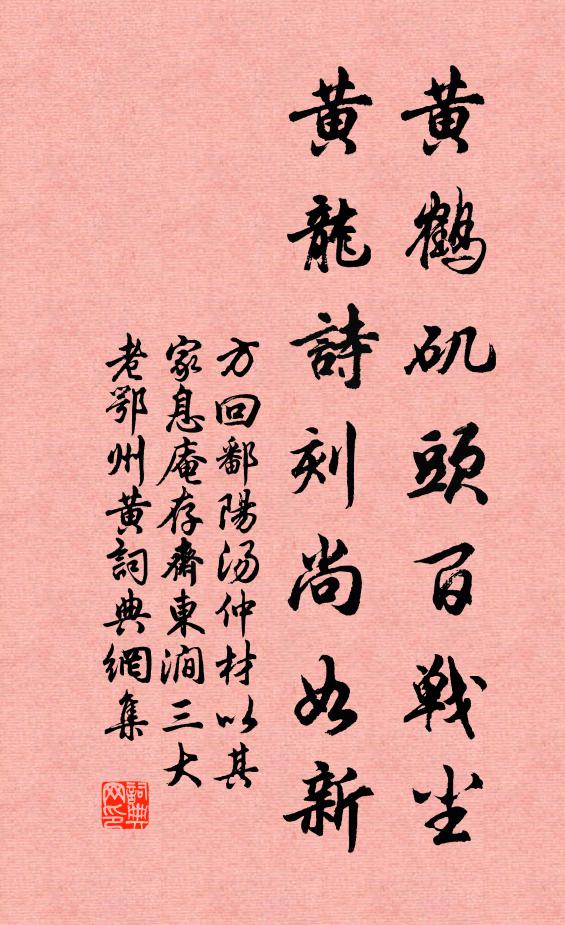 黄鶴矶頭百戦尘
黄龍詩刻尚如新
方回鄱陽湯仲材以其
家息庵存齋東澗三大
老鄂州黄詞典網集
詞典
网印